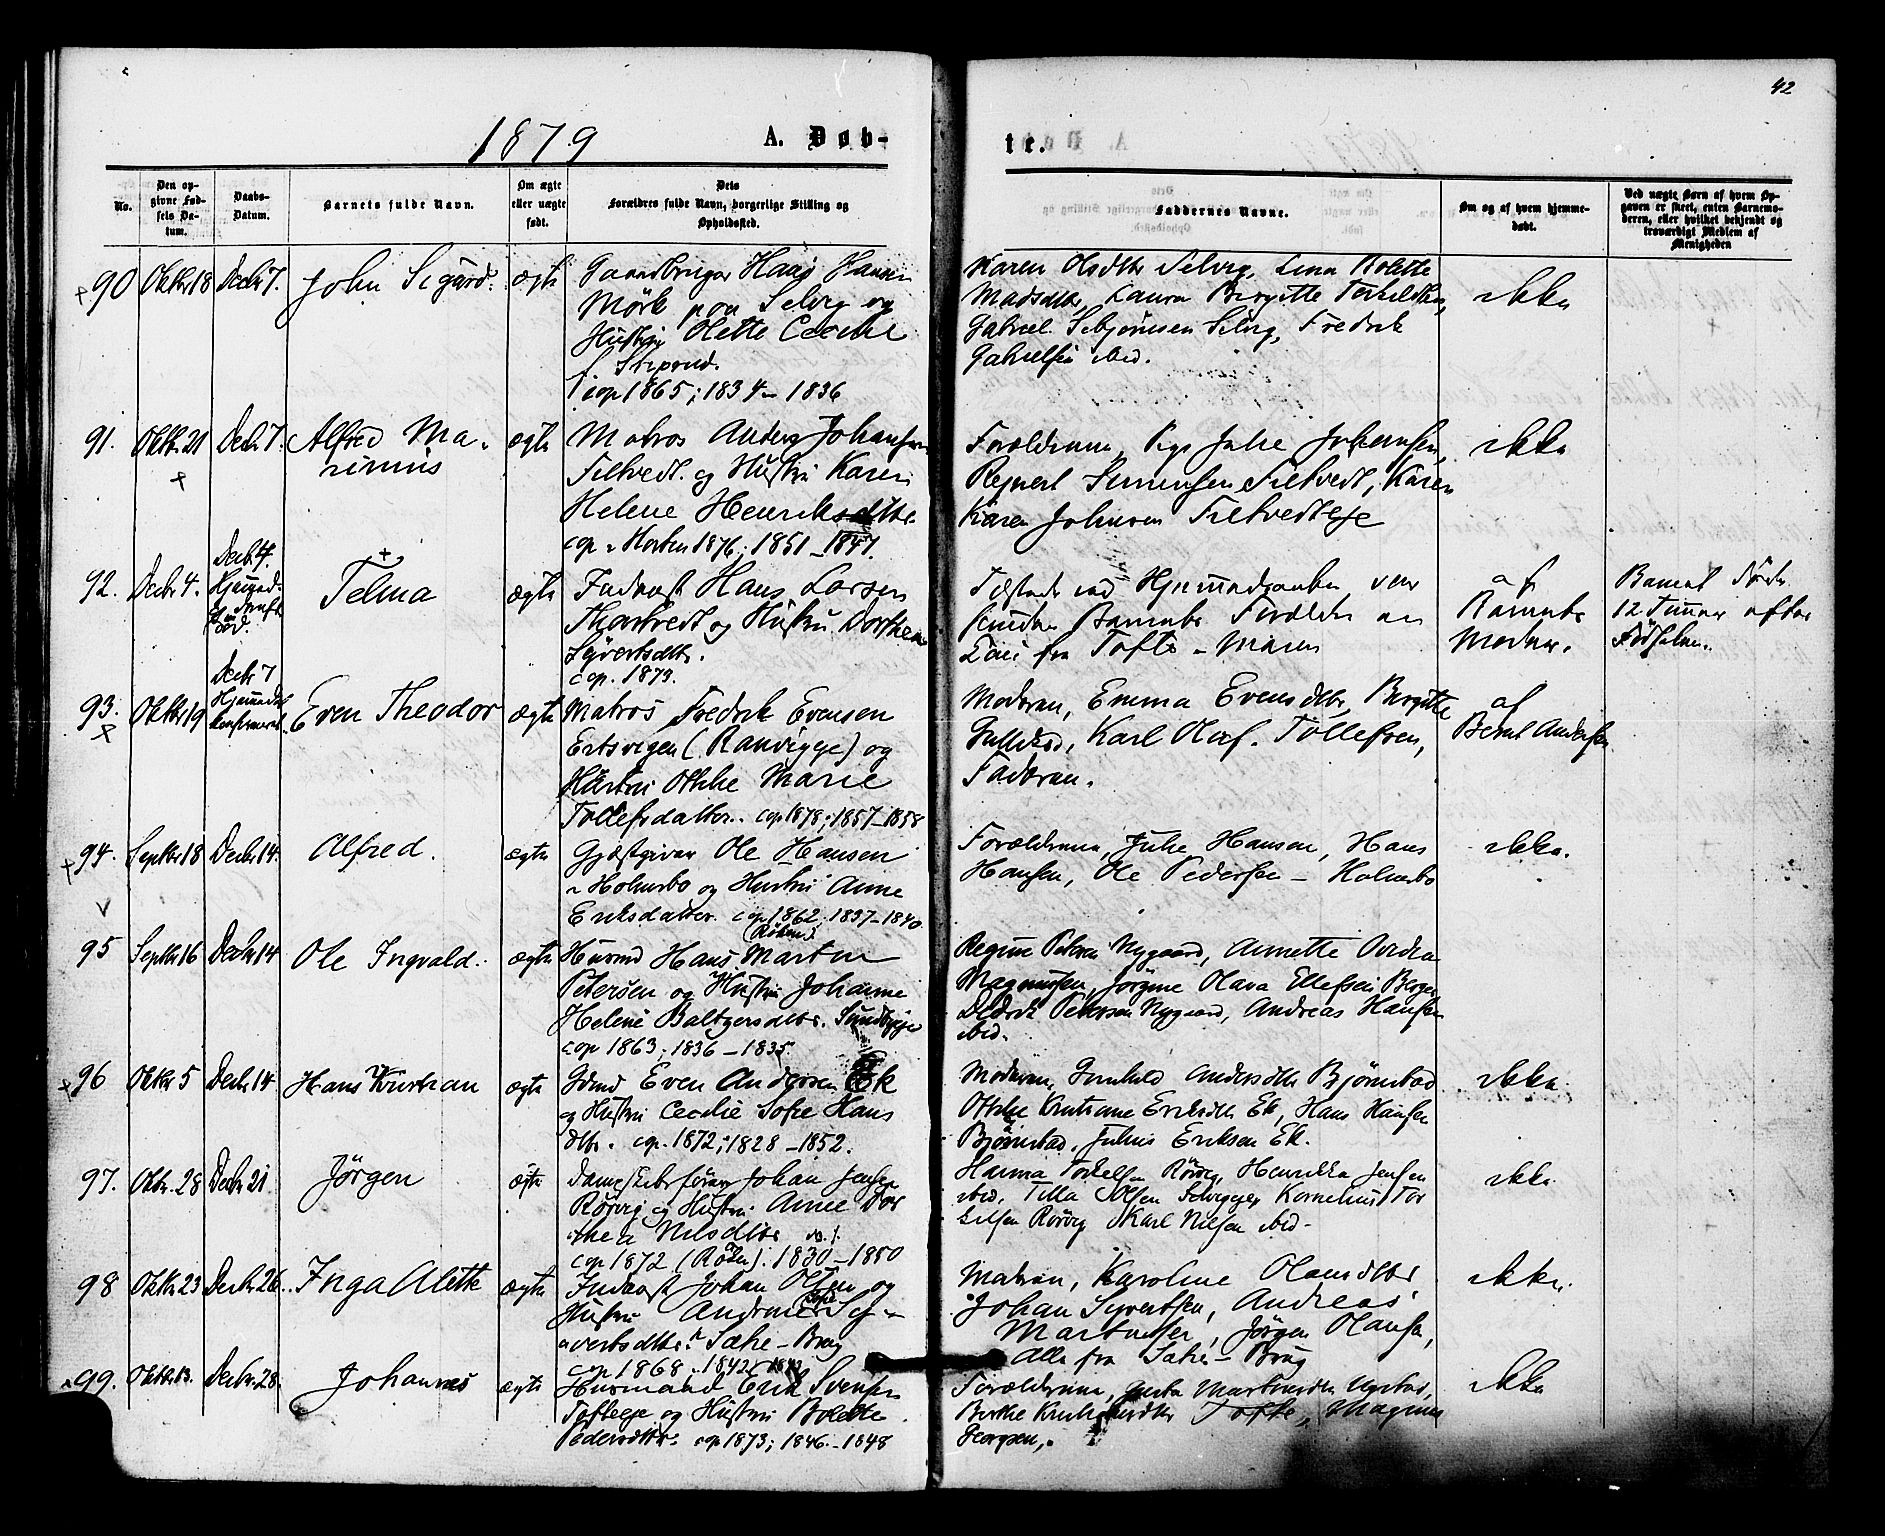 42
1879
A. Døb-
te.
No.
Den op-
givne Fød-
sels Da-
tum.
Daabs-
Datum.
Barnets fulde Navn.
Om ægte
eller uægte
født.
Dets
Forældres fulde Navn, borgerlige Stilling og
Opholdssted.
Faddernes Navne.
Om og af hvem hjemme-
døbt.
Ved uægte Børn af hvem Op-
gaven er skeet, enten Barnemo-
deren, eller hvilket bekjendt og
troværdigt Medlem af
Menigheden
90 Oktbr 18 Decbr 7. John Sigurd. ægte
Mörk paa Selvig og
Hustru Olette Cecilie
cop 1865; 1834 - 1836
Karen Olsdtr Selvig, Lina Bolette
Madsdtr, Laura Birgitte
Gabriel Selvig, Fredrik
Gabrielsen ibid.
ikke
91. Oktbr 21 Decbr 7. Alfred Ma-
rinius
ægte
Matros Anders Johansen
Tretvedt. og Hustru Karen
Helene Henriksdtr.
cop i Horten 1876; 1851 - 1847.
Forældrene, Pige Julie Johansen,
Karen Johnsen
ikke
92. Decbr 4. Decbr 4.
Telma
ægte
Inderst Hans Larsen
og Hustru Dorthea
Syvertsdtr.
cop. 1873.
Tilstede ved Hjemmedaaben var
Barnets Forældre
fra Tofte - Maren
af
Barnets
Moder.
Barnet døde
12 Timer efter
Födselen.
93. Oktbr 19 Decbr 7
Hjemmedøbt
Even Theodor ægte
Matros Fredrik Evensen
Ertsvigen (Ranvigeje) og
Hustru Othilie Marie
Tollefsdatter. cop 1878; 1857 - 1858
Moderen, Emma Evensdtr, Birgitte
Karl Olaf Tollefsen,
Faderen.
af
Bernt Andersen
94. Septbr 18 Decbr 14. Alfred. ægte
Gjæstgiver Ole Hansen
i Holmsbo og Hustru Anne
Eriksdatter. cop 1862; 1837 - 1840
Forældrene, Julie Hansen, Hans
Hansen, Ole Pedersen - Holmsbo
ikke.
95 Septbr 16 Decbr 14 Ole Ingvald. ægte
Husmd Hans Martin
Petersen og Hustru Johanne
Helene Baltzersdtr. Sundbyeje
cop 1863; 1836 - 1835.
Regine Petersen Nygaard, Annette
Magnussen, Jörgine Olava Ellefsen
Didrik Petersen Nygaard, Andreas Hansen
ibid.
96 Oktbr 5 Decbr 14 Hans Kristian ægte
Gdmd Even Andersen Ek
og Hustru Cecilie Sofie Hans
dtr. cop. 1872; 1828 - 1852.
Moderen, Gunhild Andersdtr Bjørnstad
Othilie Kristiane Eriksdtr Ek, Hans Hansen
Bjørnstad, Julius Eriksen Ek.
ikke.
97. Oktbr. 28 Decbr 21 Jørgen ægte
Dampskibsfører Johan Jensen
Rörvig og Hustru Anne Dor
thea Nilsdtr
cop 1872 (Röken). 1830 - 1850
Hanna Torkelsen Rörvig, Henrikka Jensen
ibid, Tilla Olsen Selvigeje, Kornelius Tor
Rörvig Karl Nilsen ibid.
ikke.
98 Oktbr 23 Decbr 26. Inga Alette ægte
Inderst Johan Olsen og
Hustru Andrine Sofie Sy-
vertsdtr. Sætre - Brug
cop 1868. 1842
Karoline Olavesdtr
Johan Syvertsen, Andreas
Martinsen, Jørgen Olausen,
Alle fra Sætre - Brug
ikke.
99. Oktbr 13. Decbr 28. Johannes ægte
Husmand Erik Svensen
Tofteeje og Hustru Bolette
Pedersdtr. cop 1873; 1846 - 1848
Forældrene,
Tofte, Magnus
Georgsen.
ikke